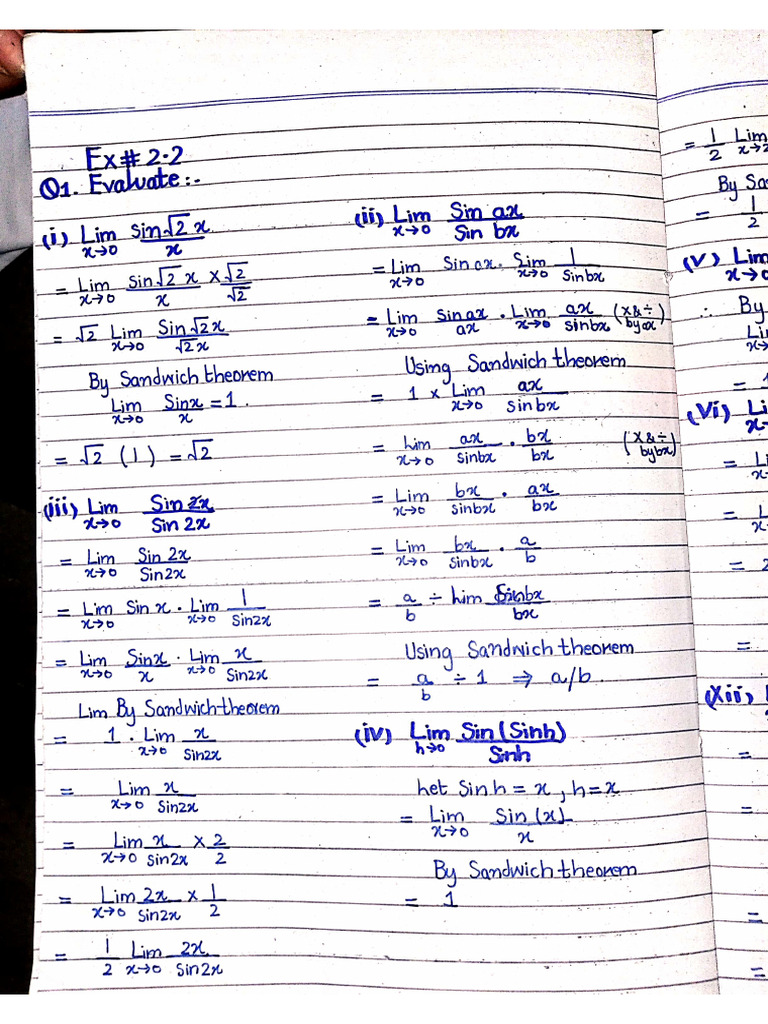 Ex# 2.2
Q1. Evaluate:-
(i) Lim x→0 Sin√2 x / x
= Lim x→0 Sin√2 x / x × √2 / √2
= √2 Lim x→0 Sin√2x / √2x
By Sandwich theorem
Lim x→0 Sinx / x = 1.
= √2 (1) = √2
(iii) Lim x→0 Sin 2x / Sin 2x
= Lim x→0 Sin 2x / Sin2x
= Lim x→0 Sin x . Lim x→0 1 / Sin2x
= Lim x→0 Sinx / x . Lim x→0 x / Sin2x
Lim By Sandwich theorem
= 1 . Lim x→0 x / Sin2x
= Lim x→0 x / Sin2x
= Lim x→0 x / Sin2x × 2 / 2
= Lim x→0 2x / Sin2x × 1 / 2
= 1 / 2 Lim x→0 2x / Sin2x
(ii) Lim x→0 Sin ax / Sin bx
= Lim x→0 Sin ax . Lim x→0 1 / Sinbx
= Lim x→0 sin ax / ax . Lim x→0 ax / sinbx (x & ÷ by ax)
Using Sandwich theorem
= 1 × Lim x→0 ax / sin bx
= Lim x→0 ax / sinbx . bx / bx (x & ÷ by bx)
= Lim x→0 bx / sinbx . ax / bx
= Lim x→0 bx / Sinbx . a / b
= a / b ÷ Lim Sinbx / bx
Using Sandwich theorem
= a / b ÷ 1 ⇒ a/b.
(iv) Lim h→0 Sin (Sinh) / Sinh
Let Sin h = x , h = x
= Lim x→0 Sin (x) / x
By Sandwich theorem
= 1
= 1 / 2 Lim
By
= 1 / 2
(v) Lim
∴ By
= 1
(vi)
= 2
(xii)